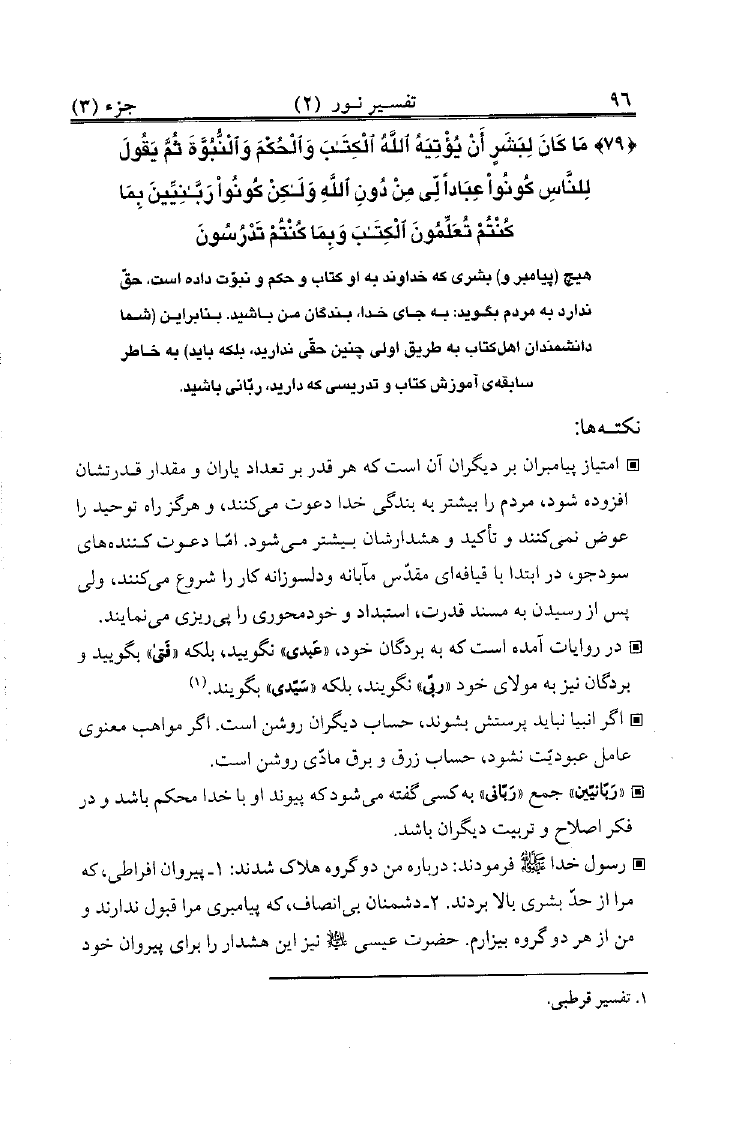 ۹۶ تفسیر نور (۲) جزء (۳)
﴿۷۹﴾ مَا كَانَ لِبَشَرٍ أَنْ يُؤْتِيَهُ ٱللَّهُ ٱلْكِتَـٰبَ وَٱلْحُكْمَ وَٱلْنُّبُوَّةَ ثُمَّ يَقُولَ
لِلنَّاسِ كُونُواْ عِبَاداً لِّى مِنْ دُونِ ٱللَّهِ وَلَـٰكِنْ كُونُواْ رَبَّـٰنِيِّينَ بِمَا
كُنْتُمْ تُعَلِّمُونَ ٱلْكِتَـٰبَ وَبِمَا كُنْتُمْ تَدْرُسُونَ
هیچ (پیامبر و) بشری که خداوند به او کتاب و حکم و نبوّت داده است، حقّ
ندارد به مردم بگوید: به جای خدا، بندگان من باشید. بنابراین (شما
دانشمندان اهل‌کتاب به طریق اولی چنین حقّی ندارید، بلکه باید) به خاطر
سابقه‌ی آموزش کتاب و تدریسی که دارید، ربّانی باشید.
نکته‌ها:
▣ امتیاز پیامبران بر دیگران آن است که هر قدر بر تعداد یاران و مقدار قدرتشان
افزوده شود، مردم را بیشتر به بندگی خدا دعوت می‌کنند، و هرگز راه توحید را
عوض نمی‌کنند و تأکید و هشدارشان بیشتر می‌شود. امّا دعوت کننده‌های
سودجو، در ابتدا با قیافه‌ای مقدّس مآبانه ودلسوزانه کار را شروع می‌کنند، ولی
پس از رسیدن به مسند قدرت، استبداد و خودمحوری را پی‌ریزی می‌نمایند.
▣ در روایات آمده است که به بردگان خود، «عَبدی» نگویید، بلکه «فَتیٰ» بگویید و
بردگان نیز به مولای خود «ربّی» نگویند، بلکه «سَیّدی» بگویند.(۱)
▣ اگر انبیا نباید پرستش بشوند، حساب دیگران روشن است. اگر مواهب معنوی
عامل عبودیّت نشود، حساب زرق و برق مادّی روشن است.
▣ «رَبّانیّین» جمع «رَبّانی» به کسی گفته می‌شود که پیوند او با خدا محکم باشد و در
فکر اصلاح و تربیت دیگران باشد.
▣ رسول خدا ﷺ فرمودند: درباره من دو گروه هلاک شدند: ۱ـ پیروان افراطی، که
مرا از حدّ بشری بالا بردند. ۲ـ دشمنان بی‌انصاف، که پیامبری مرا قبول ندارند و
من از هر دو گروه بیزارم. حضرت عیسی علیه السلام نیز این هشدار را برای پیروان خود
۱. تفسیر قرطبی.